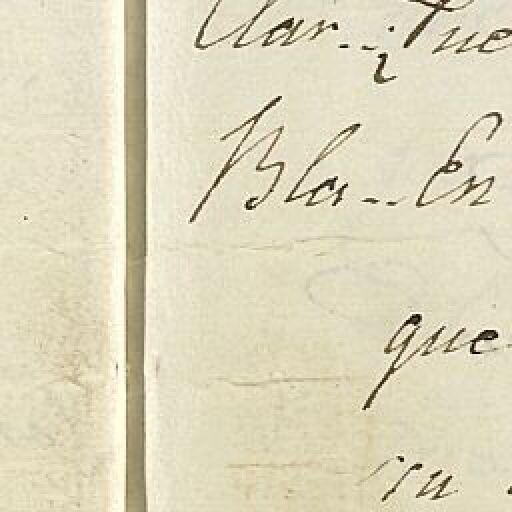 Clar... ¿Pue
Bla... En
que
su